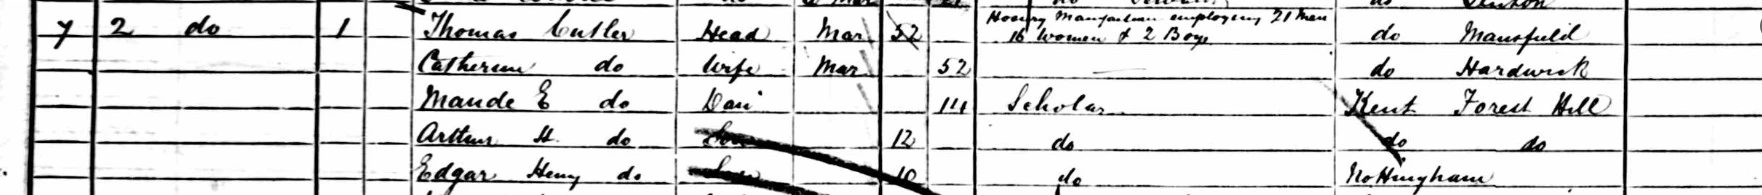 7 2 do 1 Thomas Cutler Head Mar 52 Hosiery Manufacturer employing 21 Men 16 Women & 2 Boys do Mansfield
Catherine do Wife Mar 52 do Hardwick
Maude E do Dau 14 Scholar Kent Forest Hill
Arthur H. do Son 12 do do do
Edgar Henry do Son 10 do Nottingham